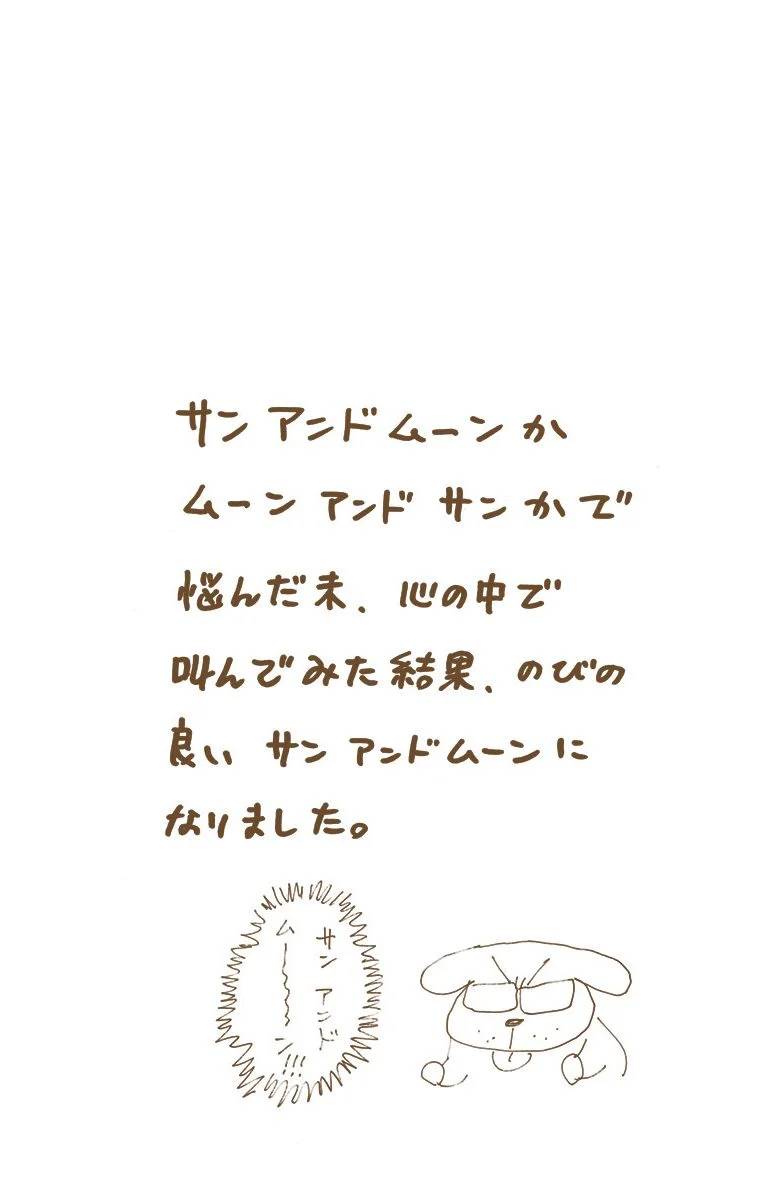 サン アンド ムーンか
ムーン アンド サンかで
悩んだ末、心の中で
叫んでみた結果、のびの
良い サン アンドムーンに
なりました。
サン アンド
ムー〜〜〜ン!!!